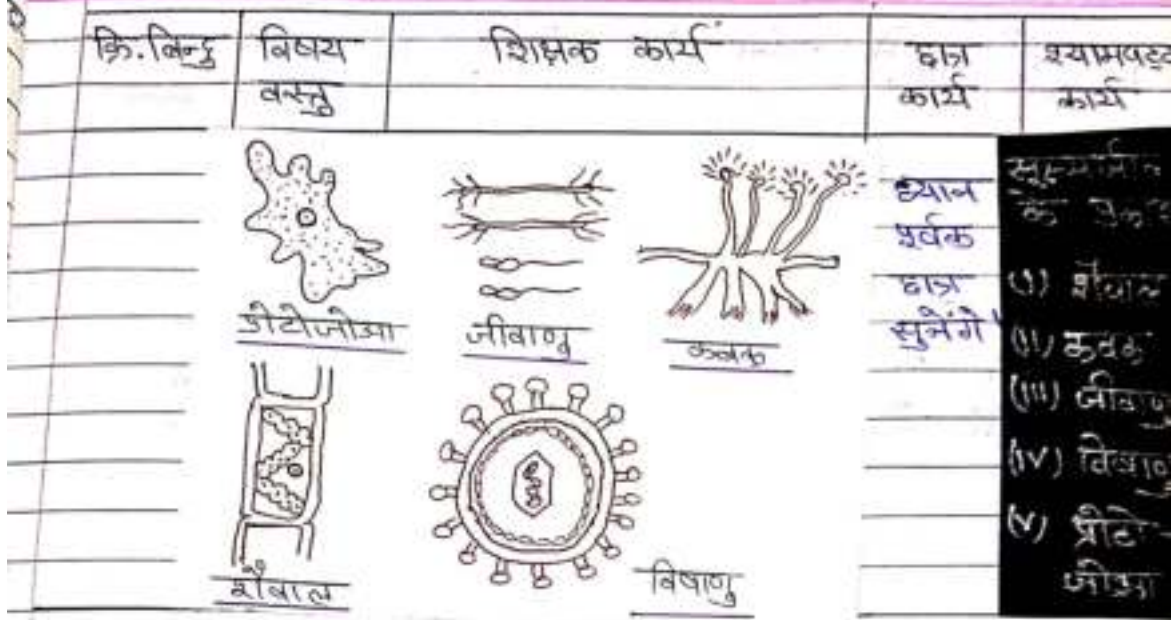 क्रि.बिन्दु
विषय
वस्तु
शिक्षक कार्य
छात्र
कार्य
श्यामपट्ट
कार्य
प्रोटोजोआ
जीवाणु
कवक
शैवाल
विषाणु
ध्यान
पूर्वक
छात्र
सुनेंगे।
सूक्ष्मजीव
के
(i) शैवाल
(ii) कवक
(iii) जीवाणु
(iv) विषाणु
(v) प्रोटो-
जोआ